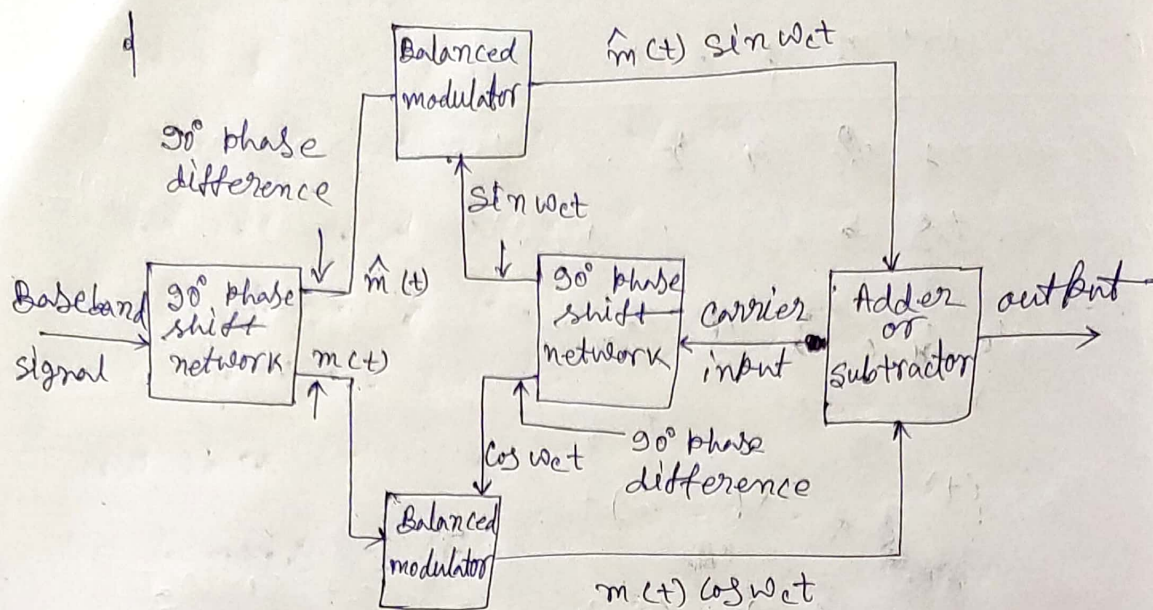 d
Balanced
modulator
m̂(t) sin wct
90° phase
difference
sin wct
Baseband
signal
90° phase
shift
network
m̂(t)
m(t)
90° phase
shift
network
carrier
input
Adder
or
subtractor
output
Cos wct
90° phase
difference
Balanced
modulator
m(t) Cos wct